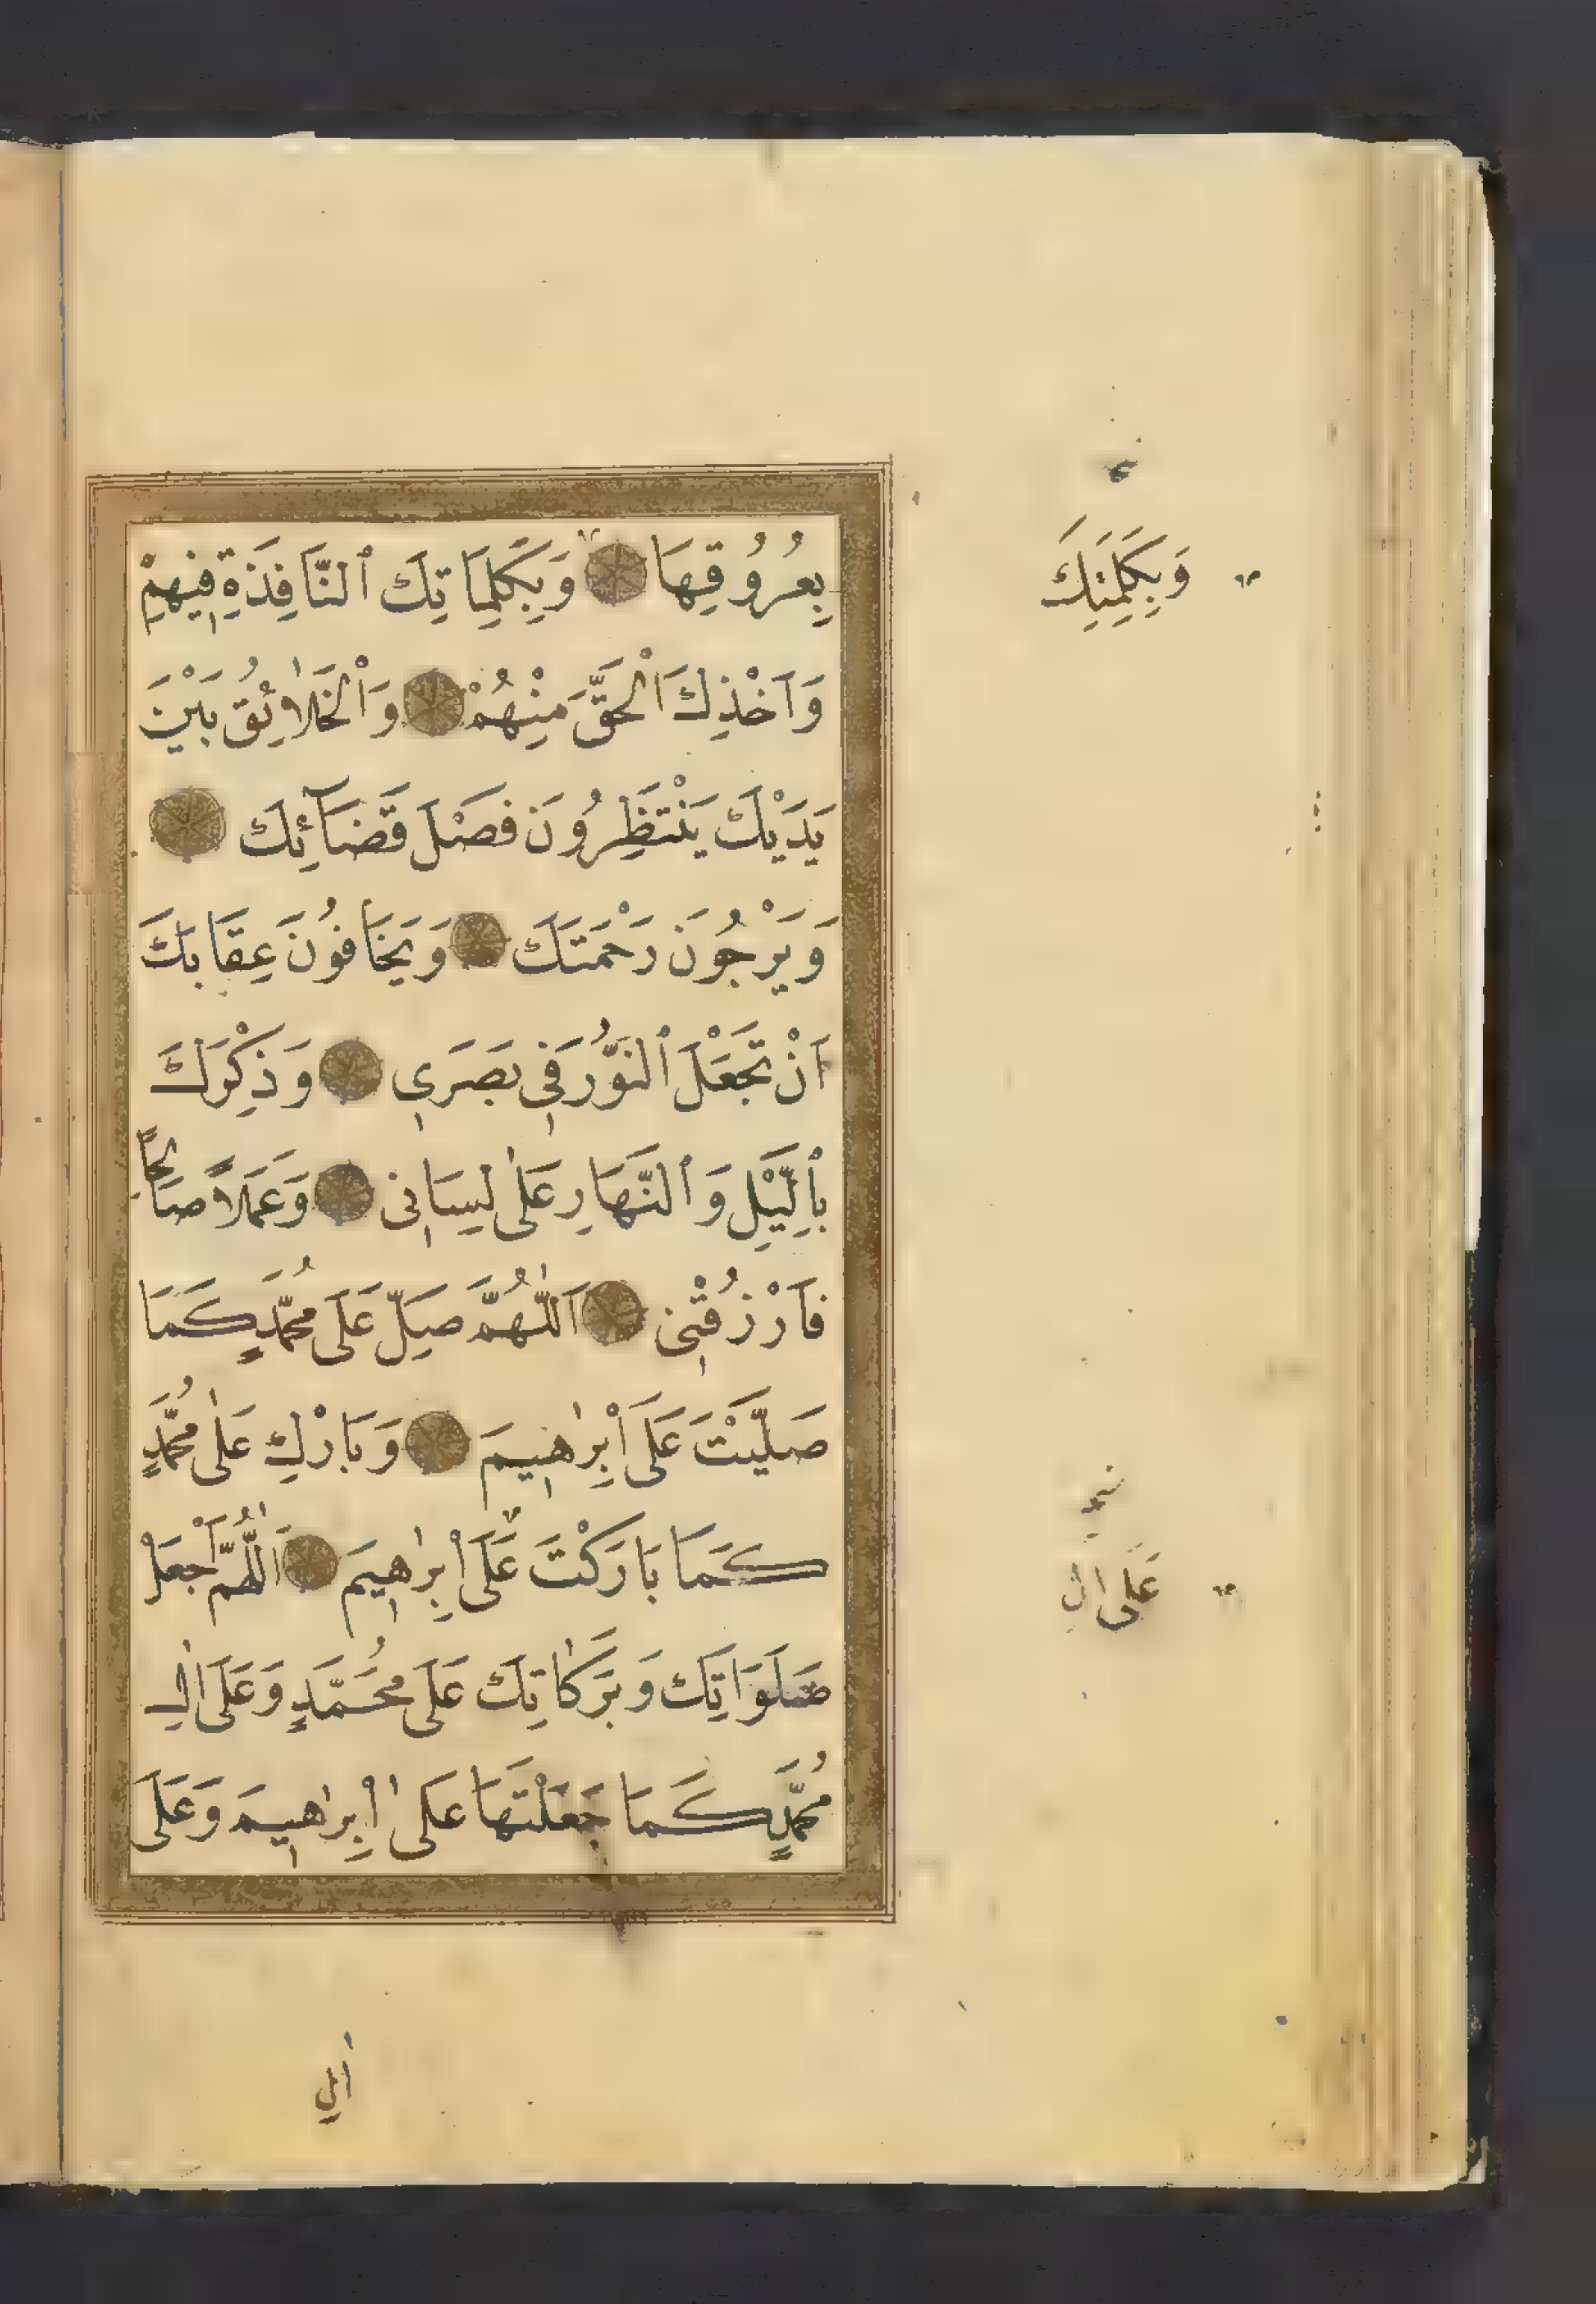 بِعُرُوقِهَا وَبِكَلِمَاتِكَ ٱلنَّافِذَةِ فِيهِمْ
وَاَخْذِكَ اَلْحَقَّ مِنْهُمْ وَاَلْخَلَائِقُ بَيْنَ
يَدَيْكَ يَنْتَظِرُونَ فَصْلَ قَضَآئِكَ
وَيَرْجُونَ رَحْمَتَكَ وَيَخَافُونَ عِقَابَكَ
اَنْ تَجْعَلَ ٱلنُّورَ فِي بَصَرِي وَذِكْرَكَ
بِٱللَّيْلِ وَٱلنَّهَارِ عَلٰى لِسَانِي وَعَمَلاً صَالِحاً
فَارْزُقْنِي اَللّٰهُمَّ صَلِّ عَلَى مُحَمَّدٍ كَمَا
صَلَّيْتَ عَلَى اِبْرٰهِيمَ وَبَارِكْ عَلٰى مُحَمَّدٍ
كَمَا بَارَكْتَ عَلَى اِبْرٰهِيمَ اَللّٰهُمَّ اَجْعَلْ
صَلَوَاتِكَ وَبَرَكَاتِكَ عَلَى مُحَمَّدٍ وَعَلَى اٰلِ
مُحَمَّدٍ كَمَا جَعَلْتَهَا عَلٰى اِبْرٰهِيمَ وَعَلَى
وَبِكَلِمَتِكَ
عَلَى اٰلِ
اٰلِ